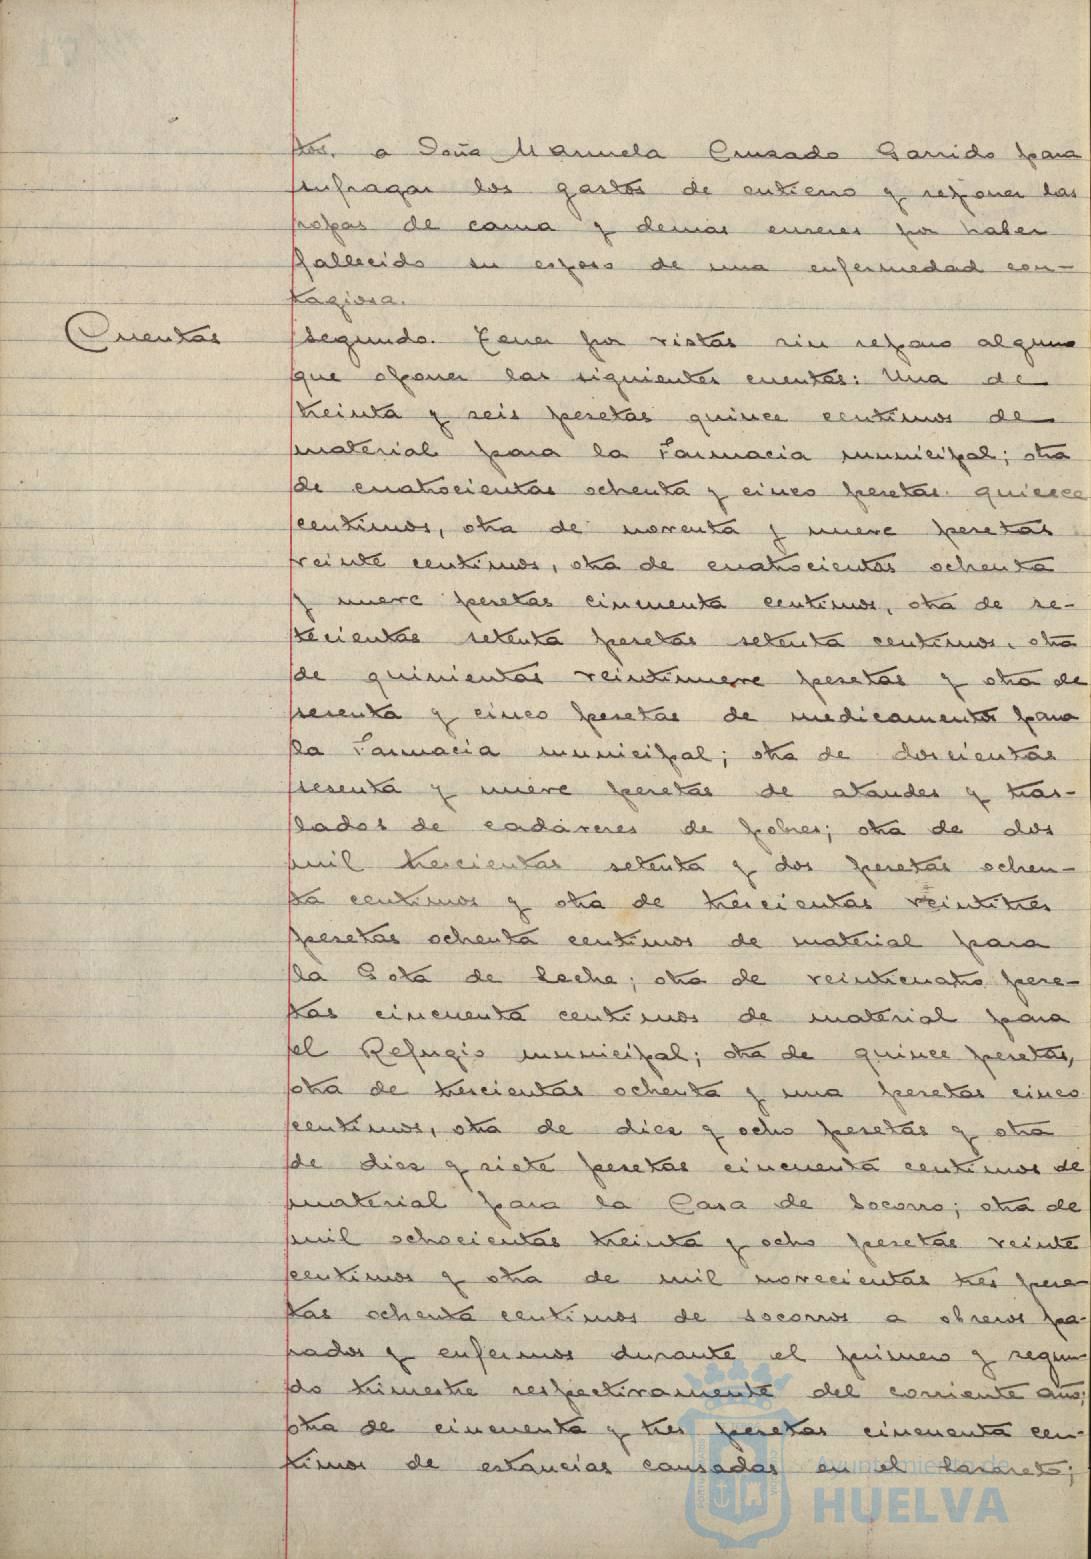 tos. a Doña Manuela Cruzado Garrido para
sufragar los gastos de entierro y reponer las
ropas de cama y demás enseres por haber
fallecido su esposo de una enfermedad con-
tagiosa.
Cuentas
Segundo. Tener por vistas sin reparo alguno
que oponer las siguientes cuentas: Una de
treinta y seis pesetas quince centimos de
material para la Farmacia municipal; otra
de cuatrocientas ochenta y cinco pesetas quince
centimos, otra de noventa y nueve pesetas
veinte centimos, otra de cuatrocientas ochenta
y nueve pesetas cincuenta centimos, otra de se-
tecientas setenta pesetas setenta centimos, otra
de quinientas veintinueve pesetas y otra de
sesenta y cinco pesetas de medicamentos para
la Farmacia municipal; otra de doscientas
sesenta y nueve pesetas de ataudes y tras-
lados de cadáveres de pobres; otra de dos
mil trescientas setenta y dos pesetas ochen-
ta centimos y otra de trescientas veintitres
pesetas ochenta centimos de material para
la Gota de Leche; otra de veinticuatro pese-
tas cincuenta centimos de material para
el Refugio municipal; otra de quince pesetas,
otra de trescientas ochenta y una pesetas cinco
centimos, otra de diez y ocho pesetas y otra
de diez y siete pesetas cincuenta centimos de
material para la Casa de Socorro; otra de
mil ochocientas treinta y ocho pesetas veinte
centimos y otra de mil novecientas tres pese-
tas ochenta centimos de socorros a obreros pa-
rados y enfermos durante el primero y segun-
do trimestre respectivamente del corriente año;
otra de cincuenta y tres pesetas cincuenta cen-
timos de estancias causadas en el Lazareto;
Ayuntamiento de
HUELVA